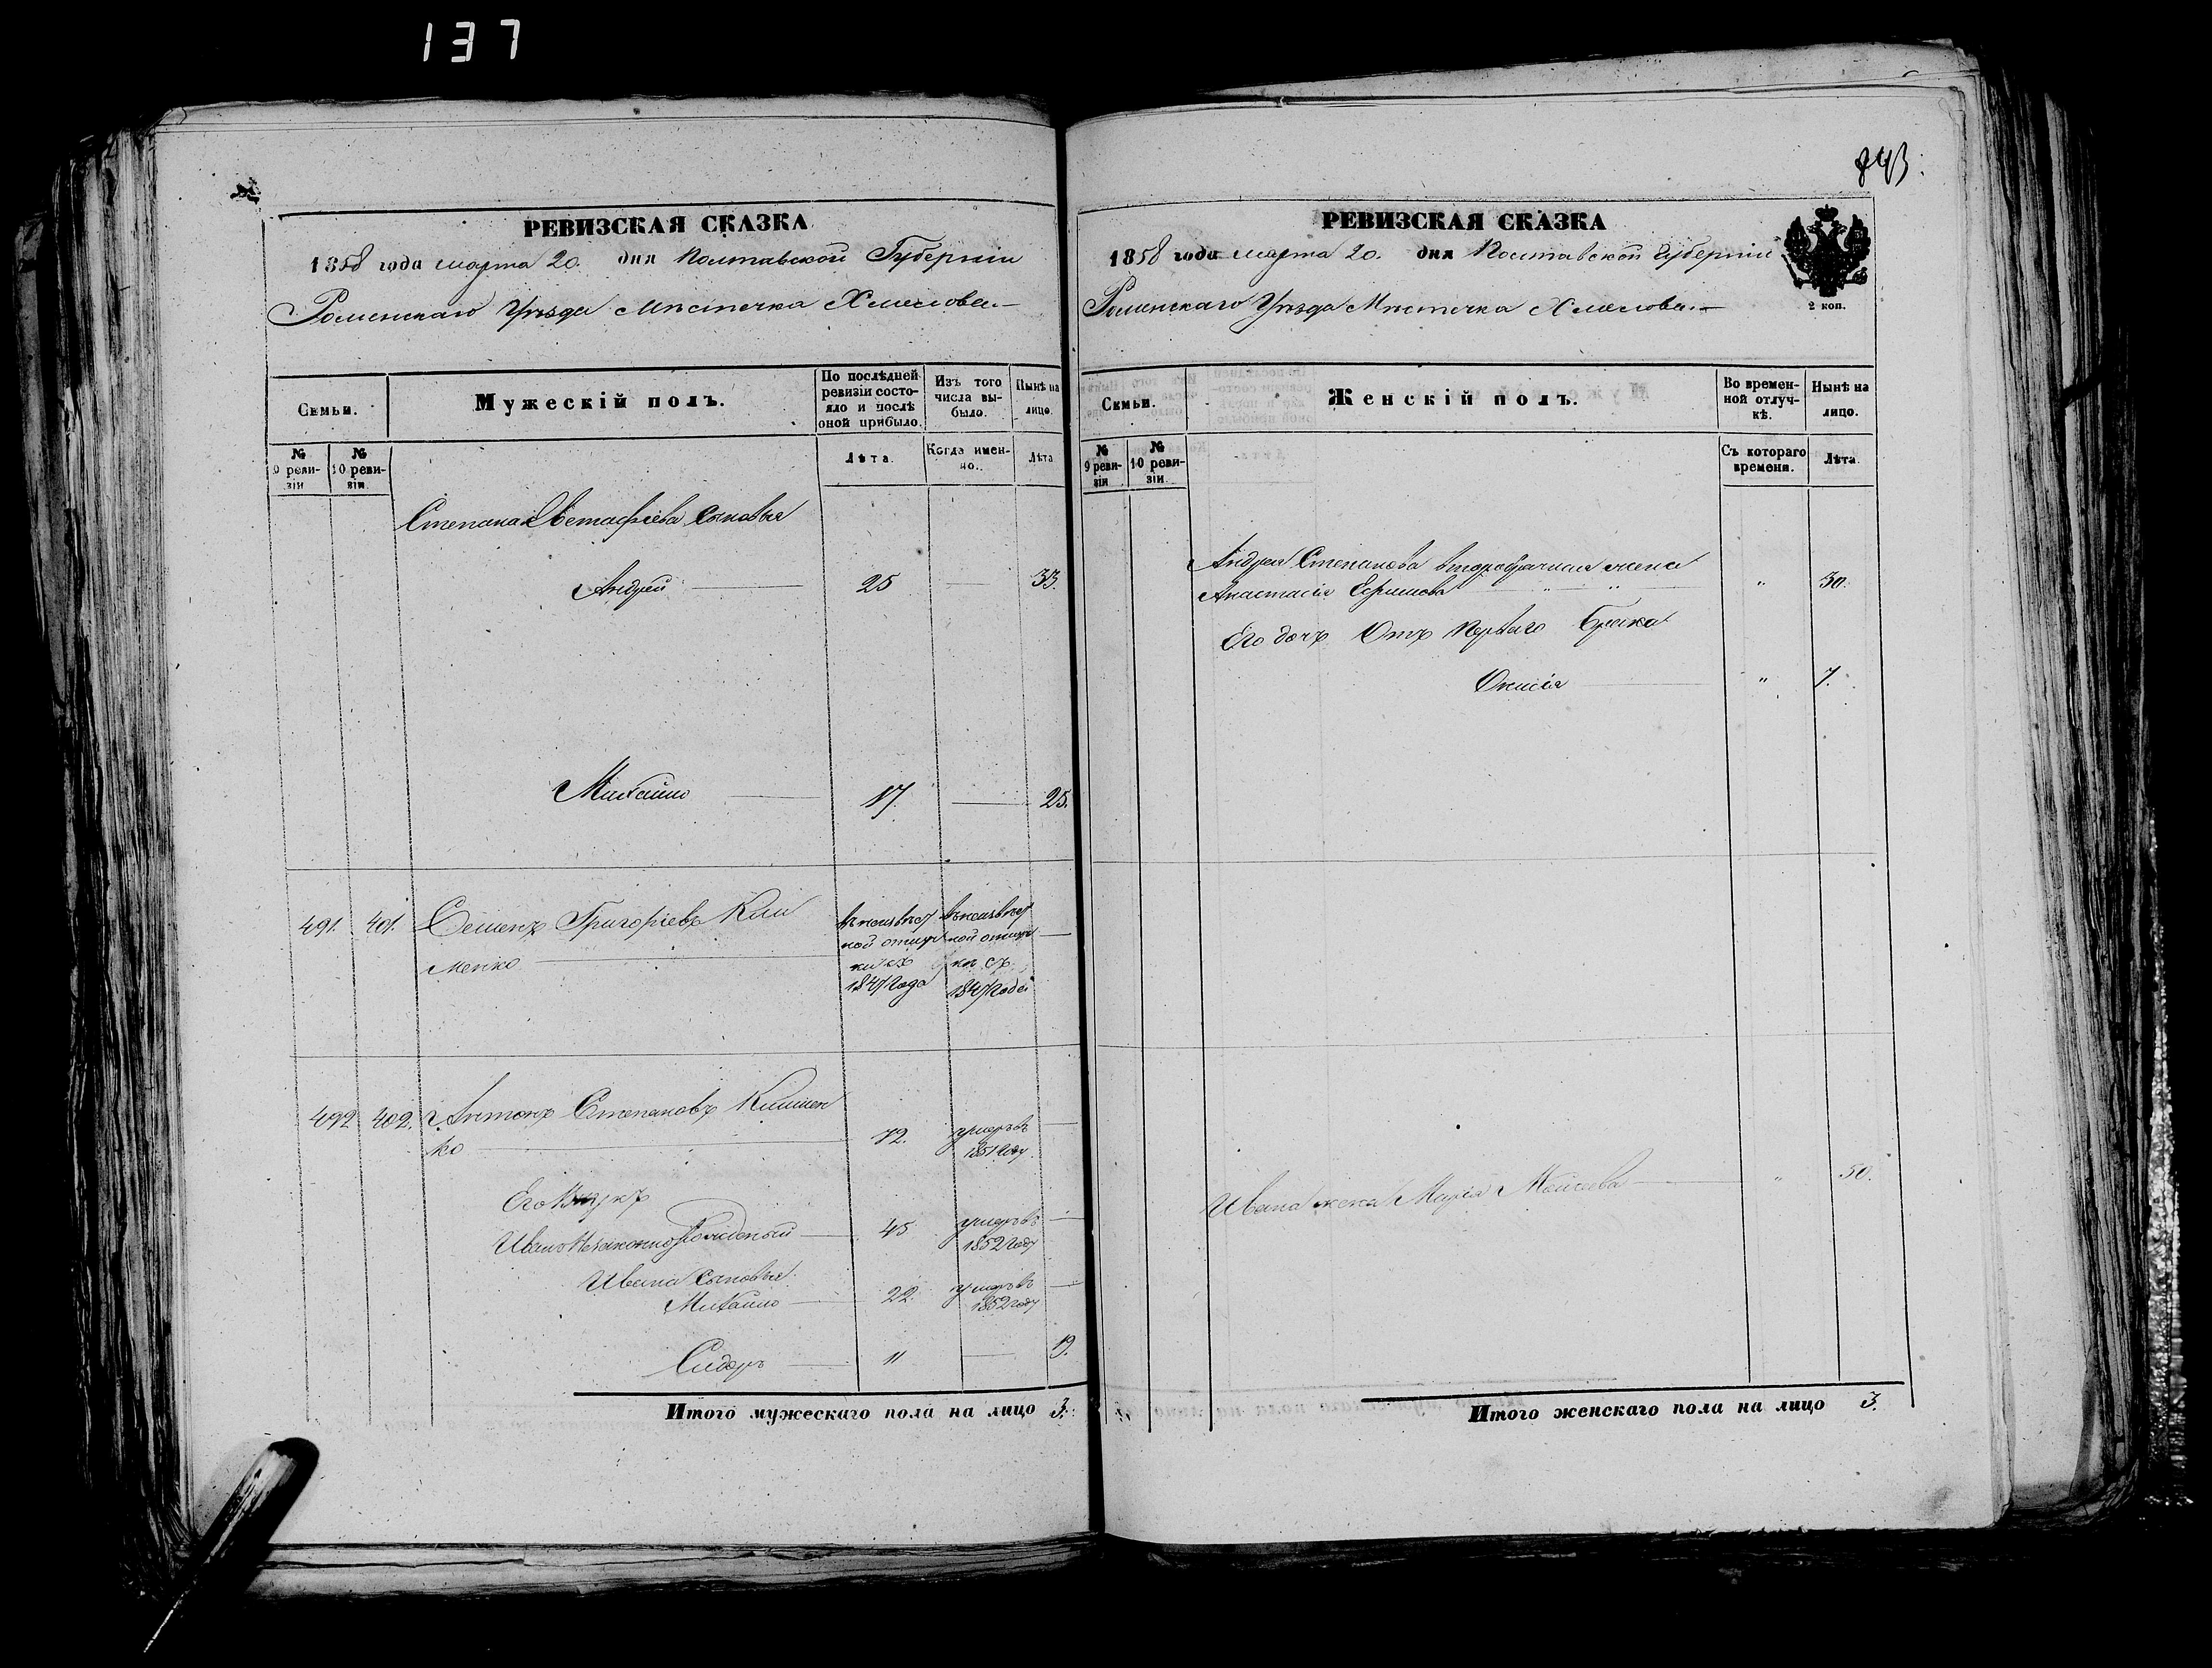 137
РЕВИЗСКАЯ СКАЗКА
1858 года марта 20. дня Полтавской Губерніи
Роменскаго Уѣзда Мѣстечка Хмелова.—
Семьи.
Мужескій полъ.
По послѣдней ревизіи состояло и послѣ оной прибыло.
Изъ того числа выбыло.
Нынѣ на лицо.
№ 9 ревизіи
№ 10 ревизіи
Лѣта.
Когда именно.
Лѣта
Степана Евстафіева Сыновья
Андрей 25 — 33.
Михайло 17. — 25.
491. 401. Семенъ Григоріевъ Кли
менко
въ неизвѣст
ной отлуч
кѣ съ
1847 года
въ неизвѣст
ной отлуч
кѣ съ
1847 года
—
492 402. Антонъ Степановъ Климен
ко 72. умеръ въ
1851 году —
Его Внукъ
Иванъ Незаконнорожденный 45 умеръ въ
1852 году —
Ивана Сыновья
Михайло 22. умеръ въ
1852 году —
Сидоръ 11 — 19.
Итого мужескаго пола на лицо 3.
843.
РЕВИЗСКАЯ СКАЗКА
1858 года марта 20. дня Полтавской Губерніи
2 коп.
Роменскаго Уѣзда Мѣстечка Хмелова.—
Семьи.
Женскій полъ.
Во временной отлучкѣ.
Нынѣ на лицо.
№ 9 ревизіи
№ 10 ревизіи
Съ котораго времени.
Лѣта.
Андрея Степанова второбрачная жена
Анастасія Ефимова " 30.
Его дочь Отъ перваго брака
" 7.
Ивана жена Марія Моисеева " 50.
Итого женскаго пола на лицо 3.